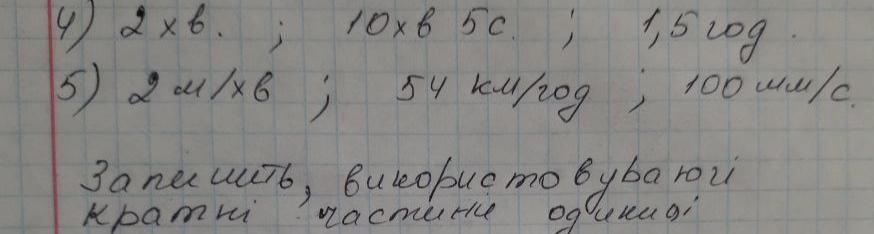 4) 2 хв. ; 10 хв 5 с. ; 1,5 год.
5) 2 м/хв ; 54 км/год ; 100 мм/с.
Запишіть, використовуваючі
кратні частині одиниці